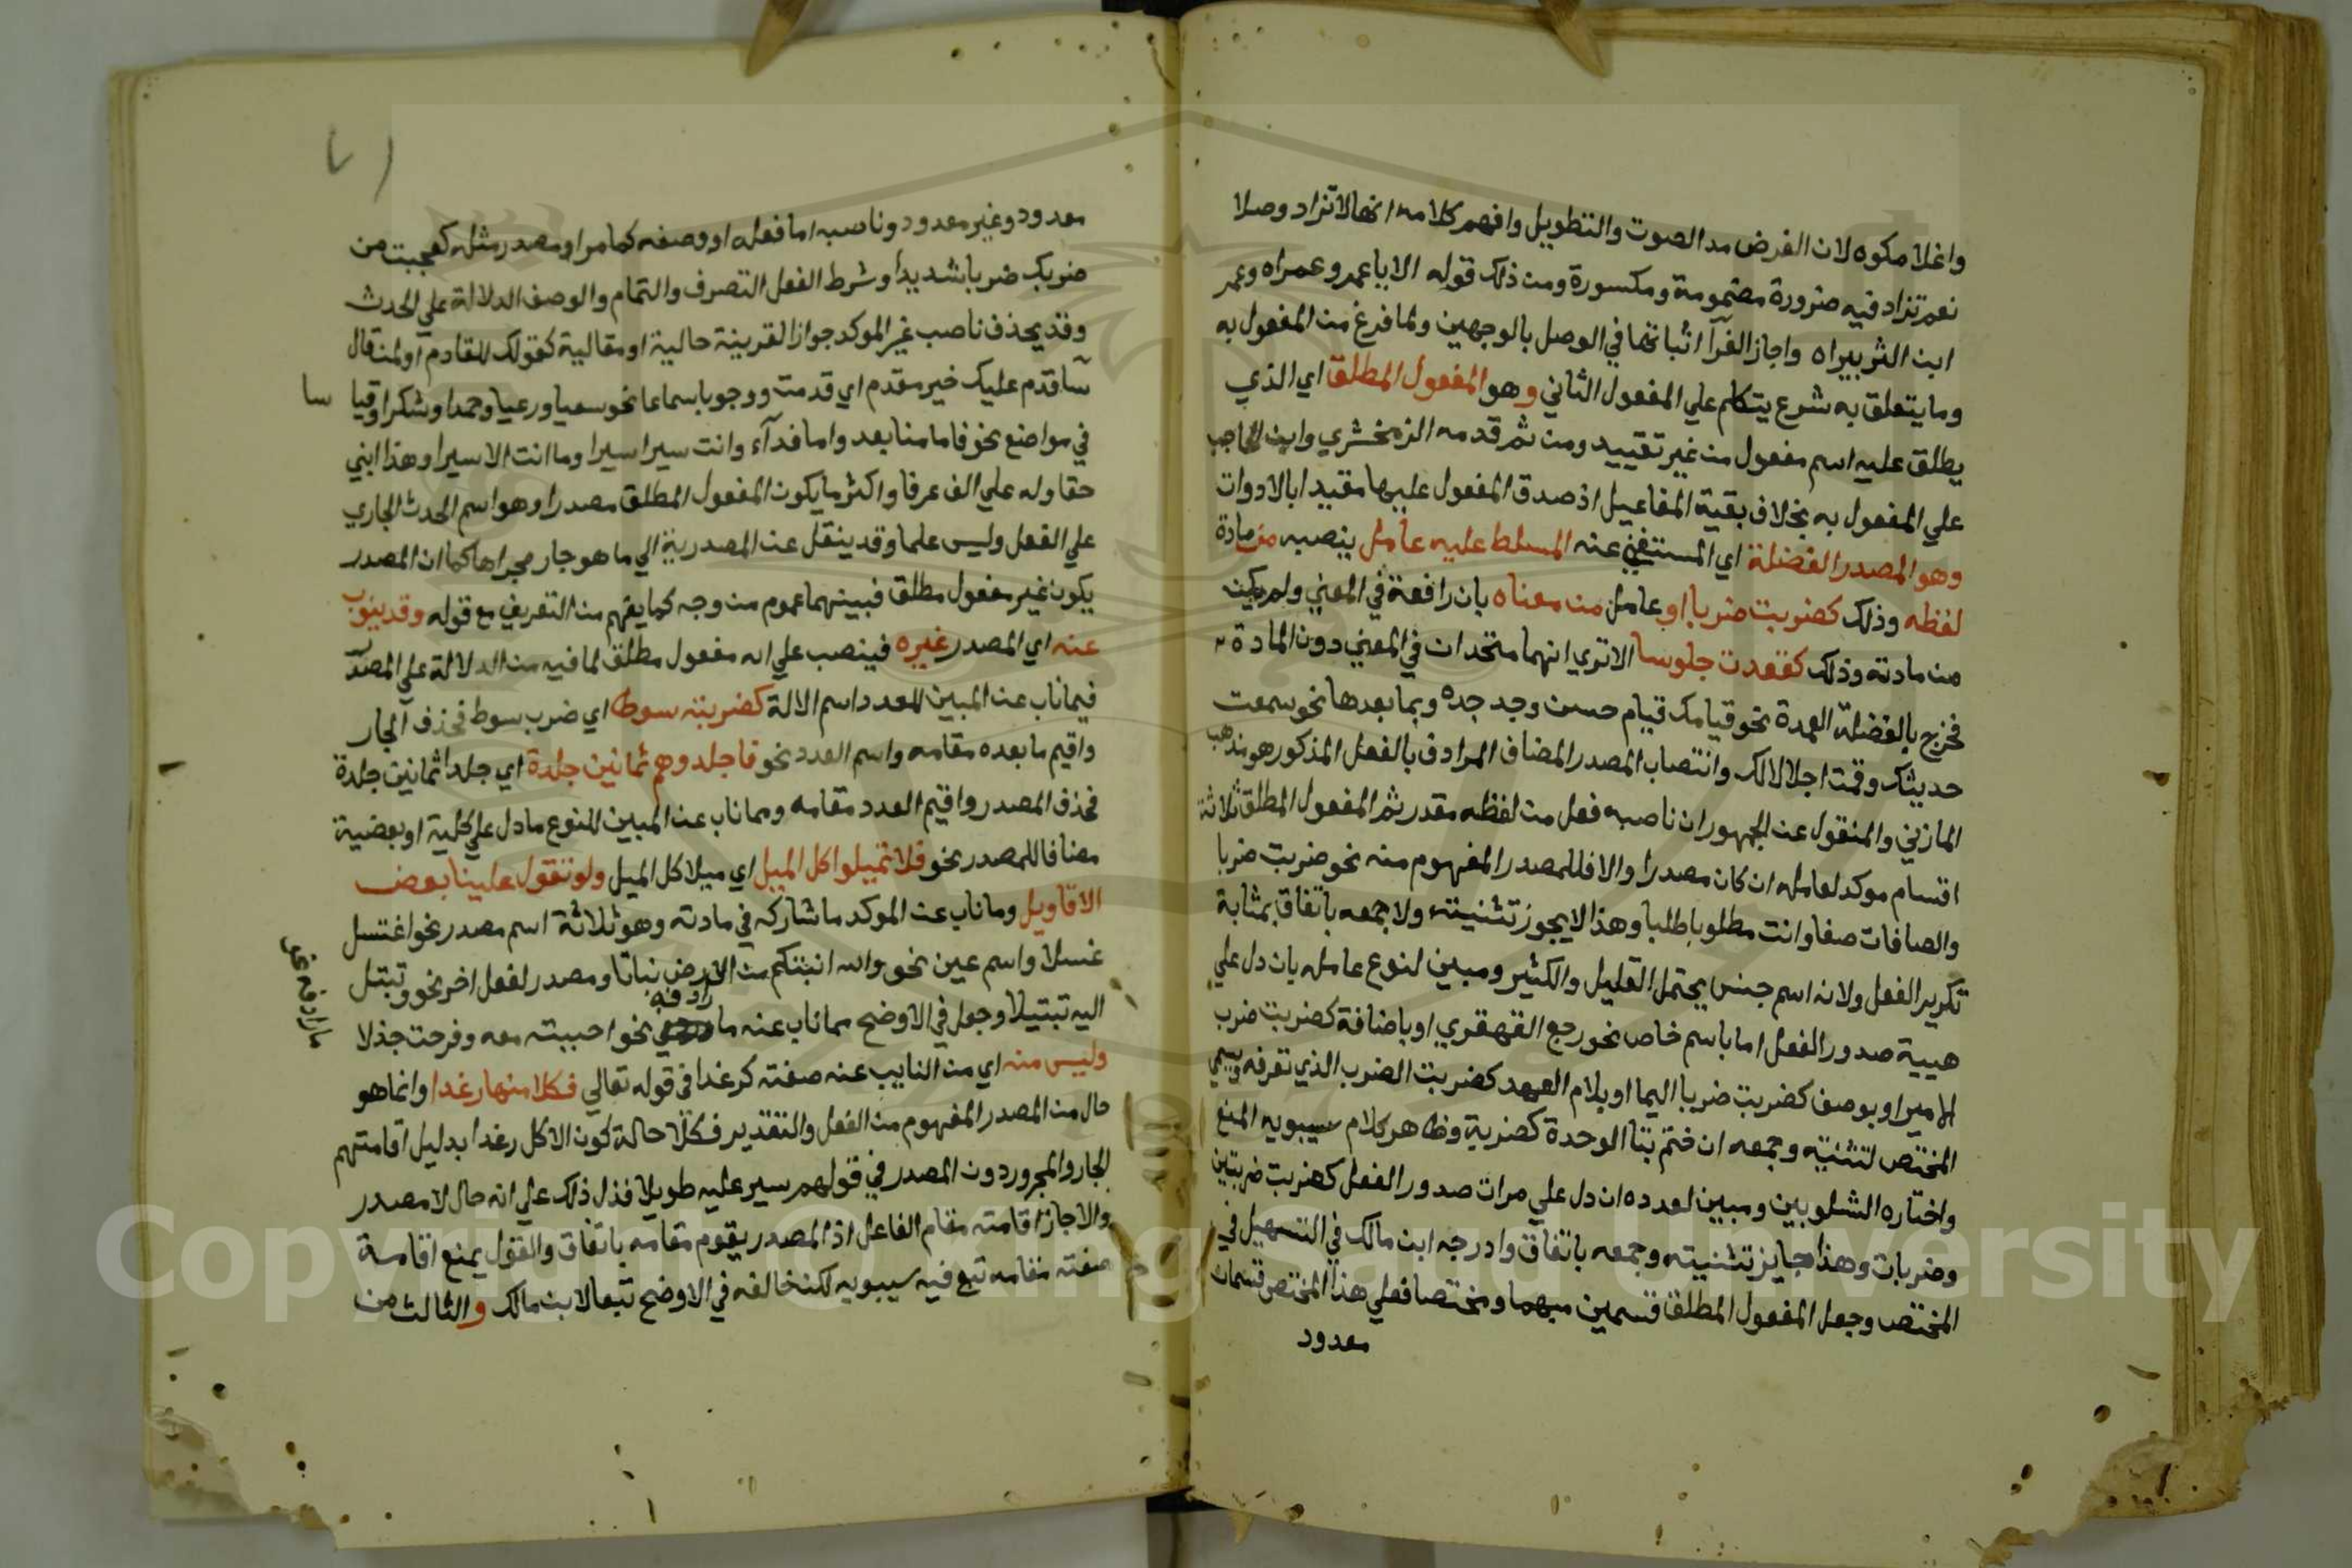 واغلامكوه لان الغرض مد الصوت والتطويل وافهم كلامه انها لا تزاد وصلا
نعم تزاد فيه ضرورة مضمومة ومكسورة ومن ذلك قوله الا يا عمرو عمراه وعمر
ابن الزبيراه واجاز الفرآ اثباتها في الوصل بالوجهين ولما فرغ من المفعول به
وما يتعلق به شرع يتكلم علي المفعول الثاني وهو المفعول المطلق اي الذي
يطلق عليه اسم مفعول من غير تقييد ومن ثم قدمه الزمخشري وابن الحاجب
علي المفعول به بخلاف بقية المفاعيل اذ صدق المفعول عليها مقيد ابالادوات
وهو المصدر الفضلة اي المستغني عنه المسلط عليه عامل ينصبه من مادة
لفظه وذلك كضربت ضربا او عامل من معناه بان رافعة في المعني ولم يكن
من مادته وذلك كقعدت جلوسا الا تري انهما متحدان في المعني دون المادة
فخرج بالفضلة العمدة نحو قيامك قيام حسن وجد جده وبما بعدها نحو سمعت
حديثك وقمت اجلالا لك وانتصاب المصدر المضاف المرادف بالفعل المذكور هو مذهب
المازني والمنقول عن الجمهور ان ناصبه فعل من لفظه مقدر ثم المفعول المطلق ثلاثة
اقسام موكد لعامله ان كان مصدرا والا فللمصدر المفهوم منه نحو ضربت ضربا
والصافات صفا وانت مطلوب طلبا وهذا لا يجوز تثنيته ولا جمعه باتفاق بمثابة
تكرير الفعل ولانه اسم جنس يحتمل القليل والكثير ومبين لنوع عامله بان دل علي
هيية صدور الفعل اما باسم خاص نحو رجع القهقري او باضافة كضربت ضرب
الامير او بوصف كضربت ضربا اليما او بلام العهد كضربت الضرب الذي تعرفه ويسمي
المختص لتثنيته وجمعه ان ختم بتا الوحدة كضربة وظاهر كلام سيبويه المنع
واختاره الشلوبين ومبين لعدده ان دل علي مرات صدور الفعل كضربت ضربتين
وضربات وهذا جايز تثنيته وجمعه باتفاق وادرجه ابن مالك في التسهيل في
المختص وجعل المفعول المطلق قسمين مبهما ومختصا فعلي هذا المختص قسمان
معدود
معدود وغير معدود وناصبه اما فعله او وصفه كما مر او مصدر مثله كعجبت من
ضربك ضربا شديدا وشرط الفعل التصرف والتمام والوصف الدلالة علي الحدث
وقد يحذف ناصب غير الموكد جوازا لقرينة حالية او مقالية كقولك للقادم او لمن قال
سآقدم عليك خير مقدم اي قدمت ووجوبا سماعا نحو سعيا ورعيا وحمدا وشكرا وقيا سا
في مواضع نحو فاما منا بعد واما فدآء وانت سيرا سيرا وما انت الا سيرا وهذا ابني
حقا وله علي الف عرفا واكثر ما يكون المفعول المطلق مصدرا وهو اسم الحدث الجاري
علي الفعل وليس علما وقد ينقل عن المصدرية الي ما هو جار مجراها كما ان المصدر
يكون غير مفعول مطلق فبينهما عموم من وجه كما يفهم من التعريف مع قوله وقد ينوب
عنه اي المصدر غيره فينصب علي انه مفعول مطلق لما فيه من الدلالة علي المصدر
فيما ناب عن المبين للعدد اسم الالة كضربته سوطا اي ضرب سوط فحذف الجار
واقيم ما بعده مقامه واسم العدد نحو فاجلدوهم ثمانين جلدة اي جلدا ثمانين جلدة
فحذف المصدر واقيم العدد مقامه ومما ناب عن المبين للنوع ما دل علي كلية او بعضية
مضافا للمصدر نحو فلا تميلوا كل الميل اي ميلا كل الميل ولو تقول علينا بعض
الاقاويل وما ناب عن الموكد ما شاركه في مادته وهو ثلاثة اسم مصدر نحو اغتسل
غسلا واسم عين نحو والله انبتكم من الارض نباتا ومصدر لفعل اخر نحو وتبتل
اليه تبتيلا وجعل في الاوضح مما ناب عنه ما رادفه نحو احببته مقه وفرحت جذلا
وليس منه اي من النايب عنه صفته كرغدا في قوله تعالي فكلا منها رغدا وانما هو
حال من المصدر المفهوم من الفعل والتقدير فكلا حالة كون الاكل رغدا بدليل اقامتهم
الجار والمجرور دون المصدر في قولهم سير عليه طويلا فدل ذلك علي انه حال لا مصدر
والا جاز اقامته مقام الفاعل اذ المصدر يقوم مقامه باتفاق والقول يمنع اقامة
صفته مقامه تبع فيه سيبويه لكنه خالفه في الاوضح تبعا لابن مالك والثالث من